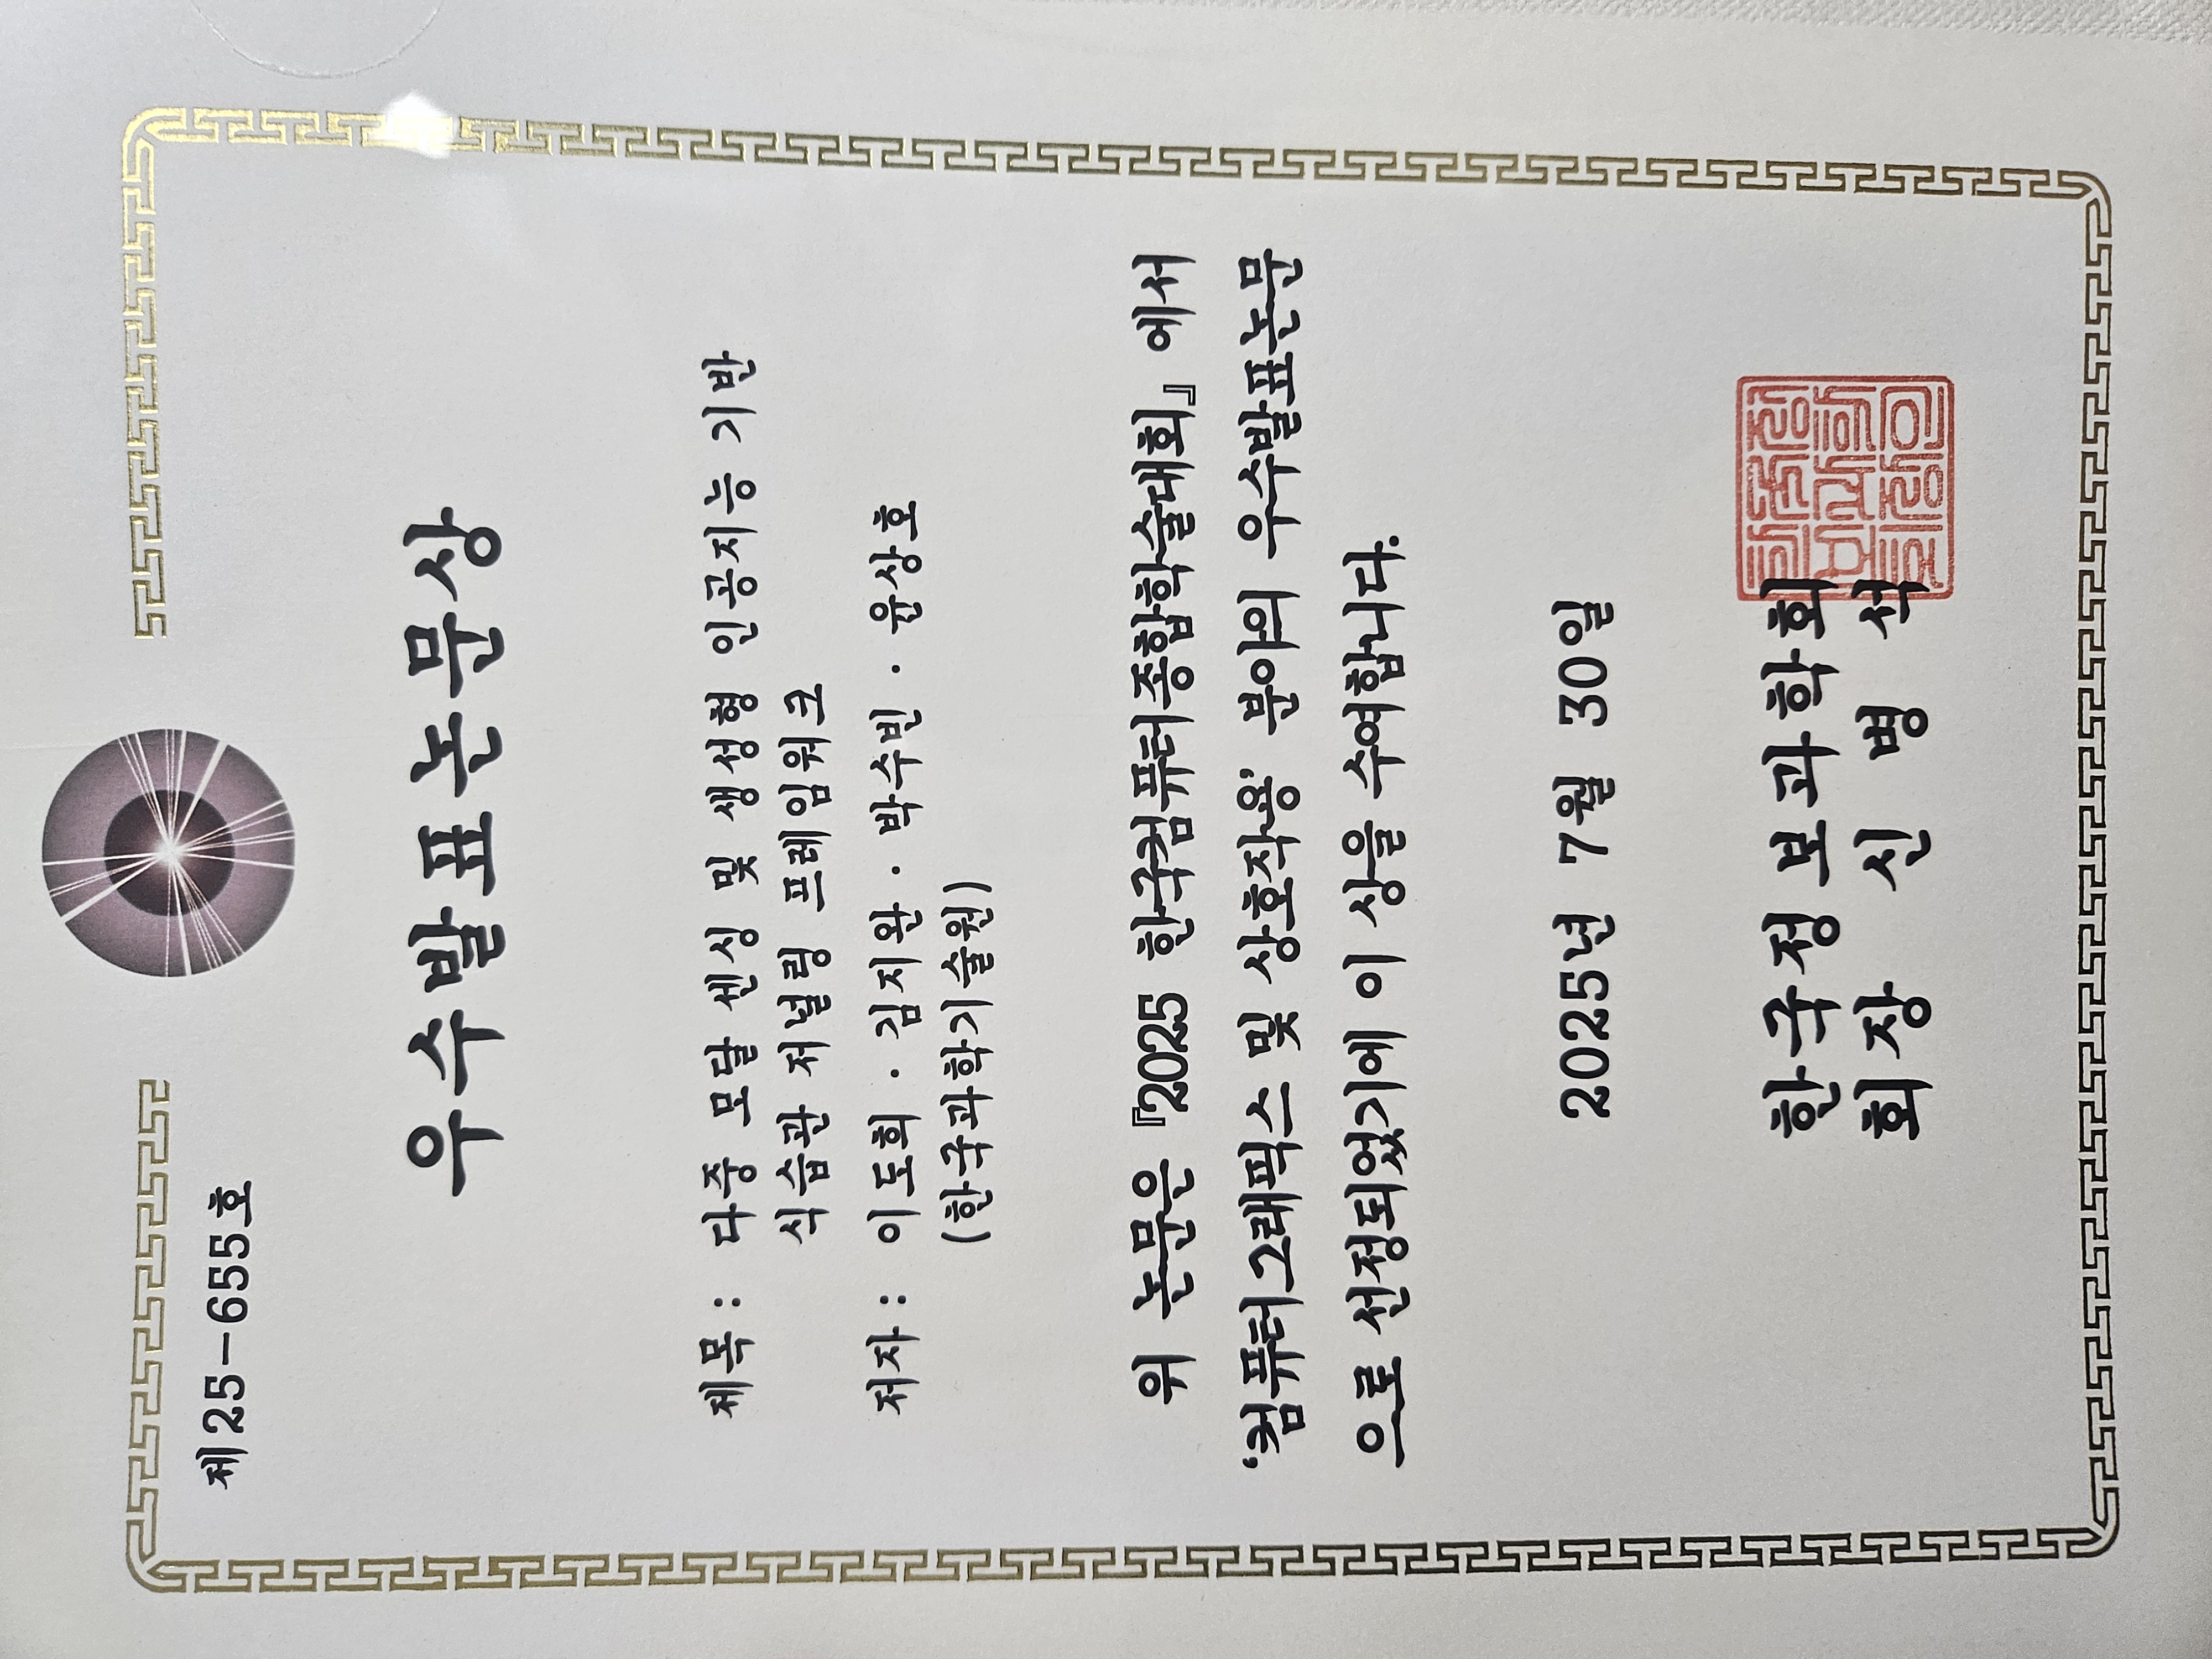 제25-655호
우수발표논문상
제목 : 다중 모달 센싱 및 생성형 인공지능 기반
식습관 저널링 프레임워크
저자 : 이도희 · 김지완 · 박수빈 · 윤상호
(한국과학기술원)
위 논문은 『2025 한국컴퓨터종합학술대회』에서
‘컴퓨터그래픽스 및 상호작용’ 분야의 우수발표논문
으로 선정되었기에 이 상을 수여합니다.
2025년 7월 30일
한국정보과학회
회장 신병석